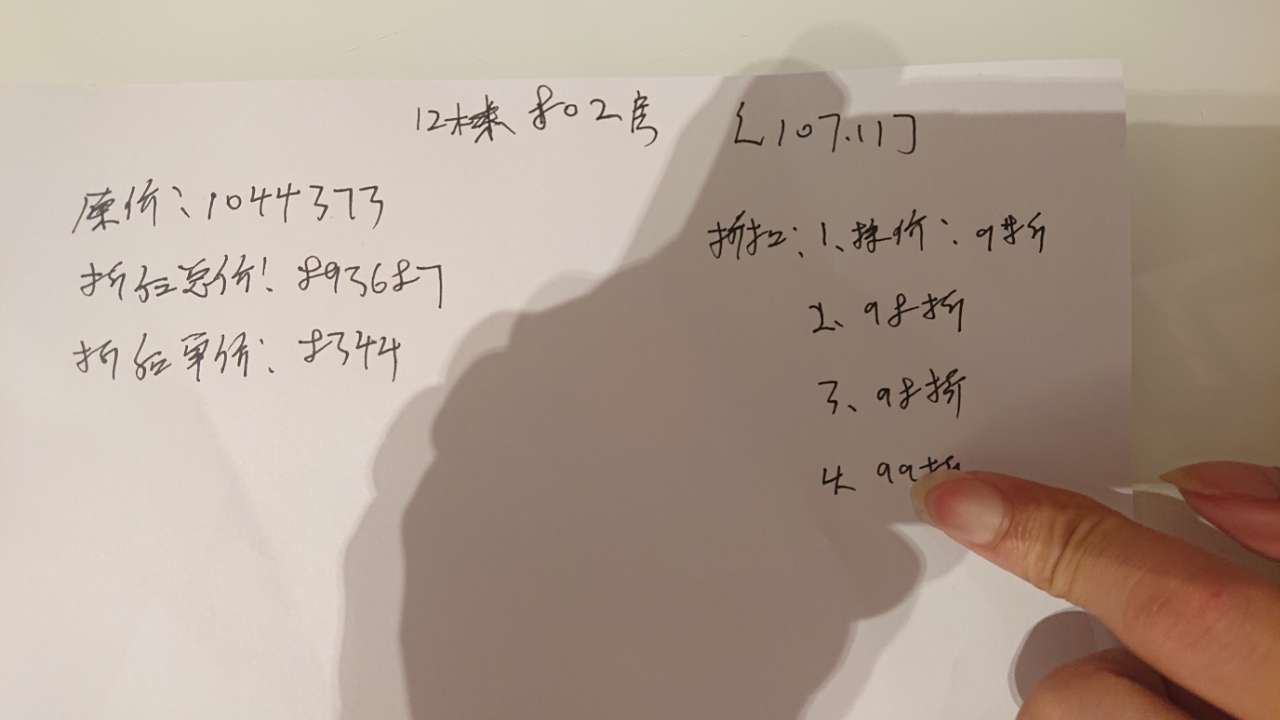 12栋 802房 [107.11]
原价:1044373
折后总价:893687
折后单价:8344
折扣:1、价:9折
2、98折
3、98折
4、99折